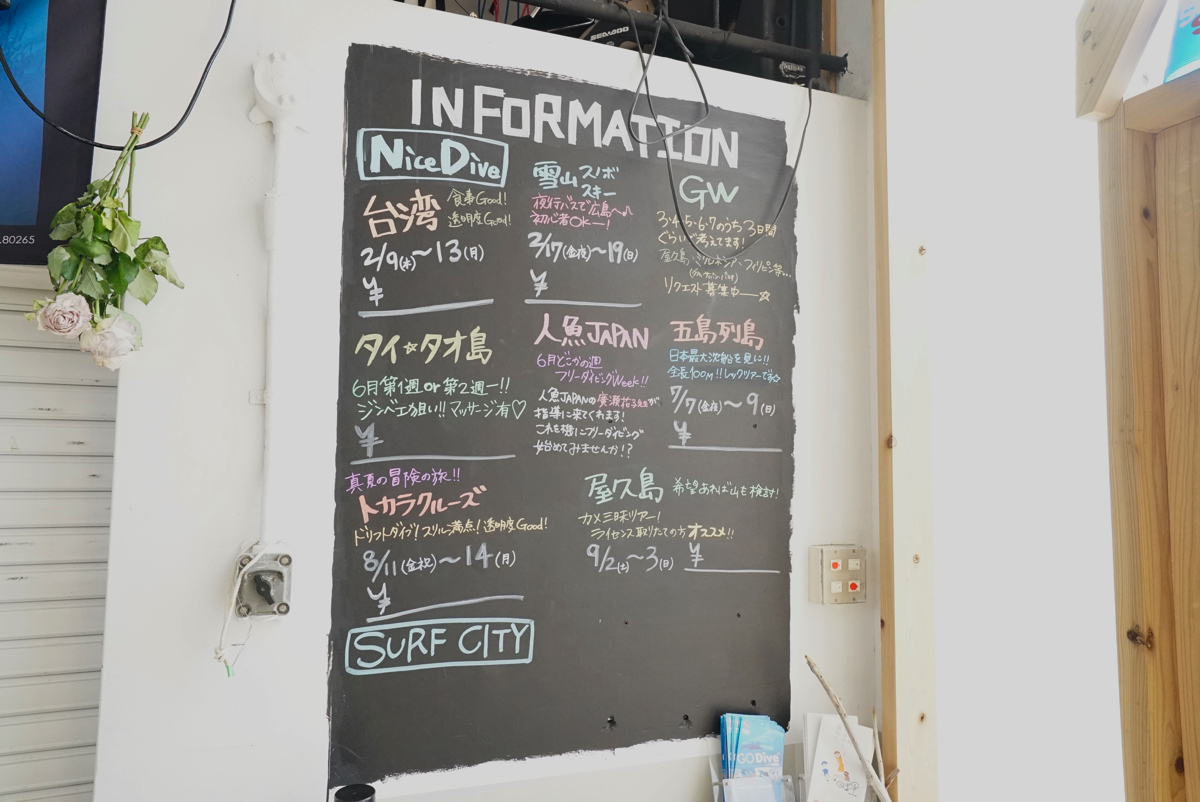 SEADOO
.80265
INFORMATION
Nice Dive
台湾
食事Good!
透明度Good!
2/9(木)～13(月)
¥
雪山
スノボ
スキー
夜行バスで広島へ♪
初心者OKー!
2/17(金夜)～19(日)
¥
GW
3・4・5・6・7のうち3日間
ぐらいで考えてます!
屋久島・ミクロネシア・フィリピン等…
リクエスト募集中――☆
タイ☆タオ島
6月第1週or第2週ー!!
ジンベエ狙い!!マッサージ有♡
¥
人魚JAPAN
6月どこかの週
フリーダイビングWeek!!
人魚JAPANの廣瀬花子
が
指導に来てくれます!
これを機にフリーダイビング
始めてみませんか!?
五島列島
日本最大沈船を見に!!
全長100M!!レックツアーです☆
7/7(金夜)～9(日)
¥
真夏の冒険の旅!!
トカラクルーズ
ドリフトダイブ!スリル満点!透明度Good!
8/11(金祝)～14(月)
¥
屋久島
希望あれば山も検討!
カメ三昧ツアー!
ライセンス取りたての方オススメ!!
9/2(土)～3(日)
¥
SURF CITY
GO Dive